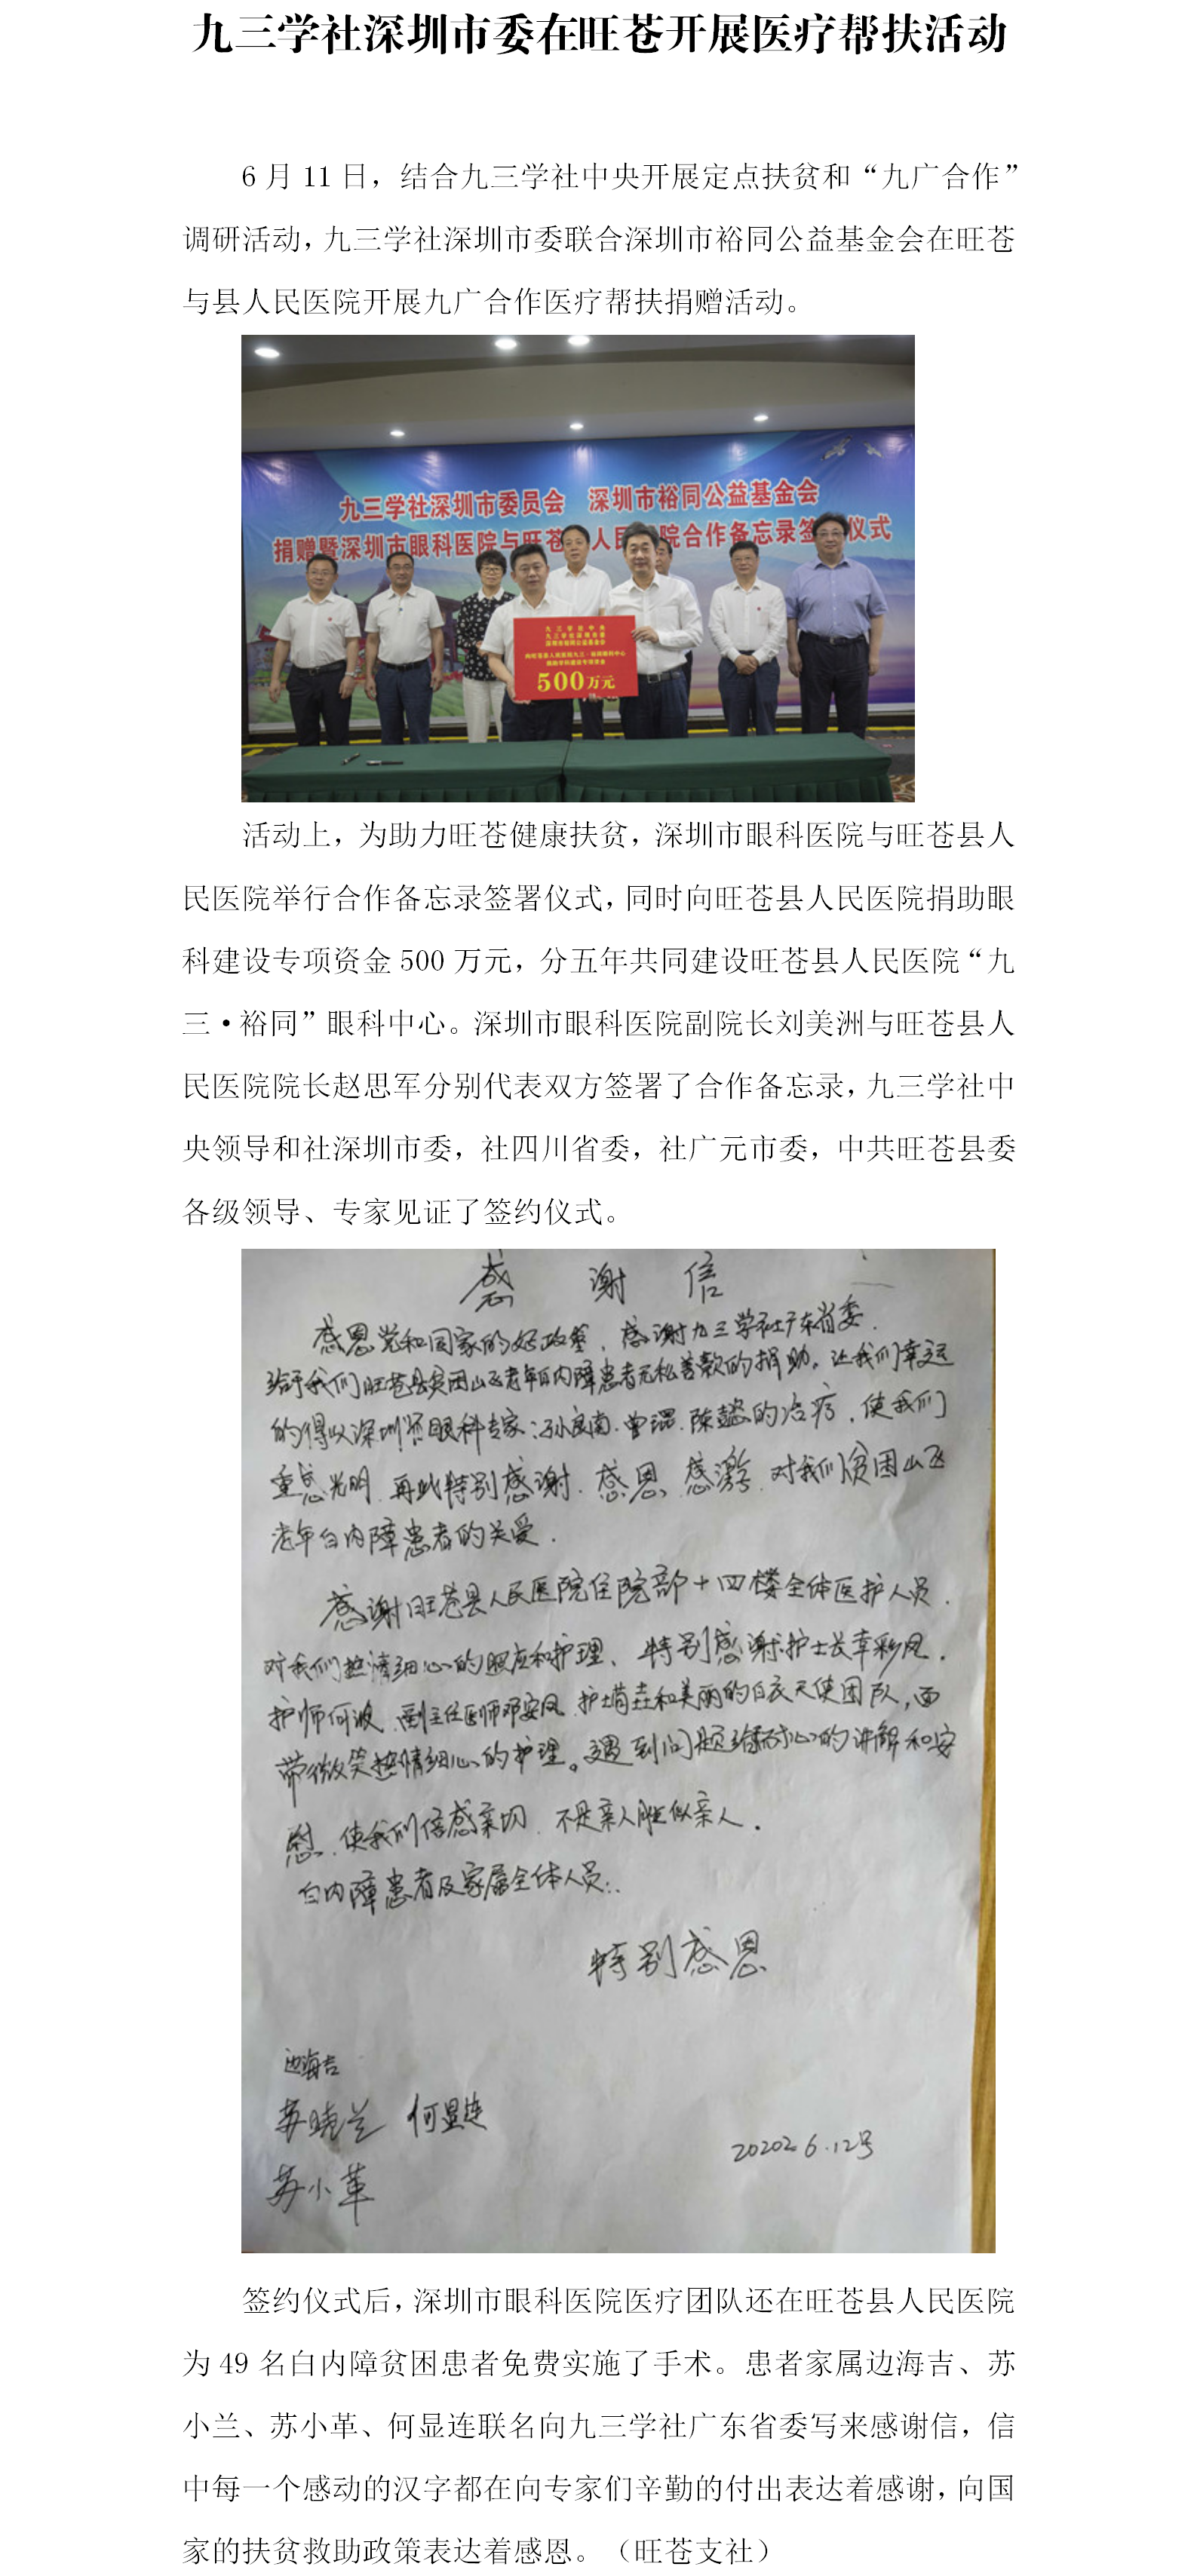 九三学社深圳市委在旺苍开展医疗帮扶活动
6月11日，结合九三学社中央开展定点扶贫和“九广合作”
调研活动，九三学社深圳市委联合深圳市裕同公益基金会在旺苍
与县人民医院开展九广合作医疗帮扶捐赠活动。
九三学社深圳市委员会 深圳市裕同公益基金会
捐赠暨深圳市眼科医院与旺苍 人民 院合作备忘录签 仪式
九三学社中央
九三学社深圳市委
深圳市裕同公益基金会
向旺苍县人民医院九三·裕同眼科中心
捐助学科建设专项资金
500万元
活动上，为助力旺苍健康扶贫，深圳市眼科医院与旺苍县人
民医院举行合作备忘录签署仪式，同时向旺苍县人民医院捐助眼
科建设专项资金500万元，分五年共同建设旺苍县人民医院“九
三·裕同”眼科中心。深圳市眼科医院副院长刘美洲与旺苍县人
民医院院长赵思军分别代表双方签署了合作备忘录，九三学社中
央领导和社深圳市委，社四川省委，社广元市委，中共旺苍县委
各级领导、专家见证了签约仪式。
感谢信
感恩党和国家的好政策，感谢九三学社广东省委.
给于我们旺苍县贫困山区老年白内障患者无私善款的捐助。让我们幸运
的得以深圳 眼科专家:孙良南.曾琨.陈懿的治疗.使我们
重感光明.再此特别感谢.感恩.感激.对我们贫困山区
老年白内障患者的关爱.
感谢旺苍县人民医院住院部十四楼全体医护人员.
对我们热情细心的照应和护理、特别感谢:护士长李彩凤.
护师何波.副主任医师邓安凤.护士 和美丽的白衣天使团队,面
带微笑热情细心的护理。遇到问题给耐心的讲解和安
慰.使我们倍感亲切.不是亲人胜似亲人.
白内障患者及家属全体人员:.
特别感恩
边海吉
苏晓兰 何显连
苏小革
2020 6.12号
签约仪式后，深圳市眼科医院医疗团队还在旺苍县人民医院
为49名白内障贫困患者免费实施了手术。患者家属边海吉、苏
小兰、苏小革、何显连联名向九三学社广东省委写来感谢信，信
中每一个感动的汉字都在向专家们辛勤的付出表达着感谢，向国
家的扶贫救助政策表达着感恩。（旺苍支社）